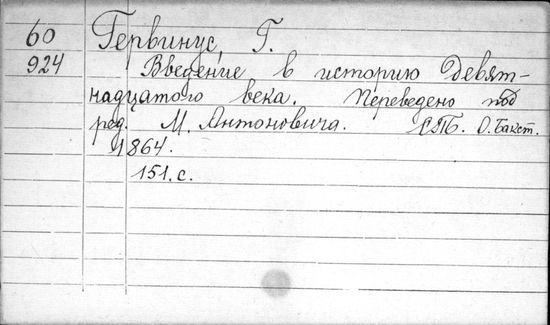 60 Гервинус, Г.
924 Введение в историю девят-
надцатого века. Переведено под
ред. М. Антоновича. СПб. О. Бакст.
1864.
151. с.